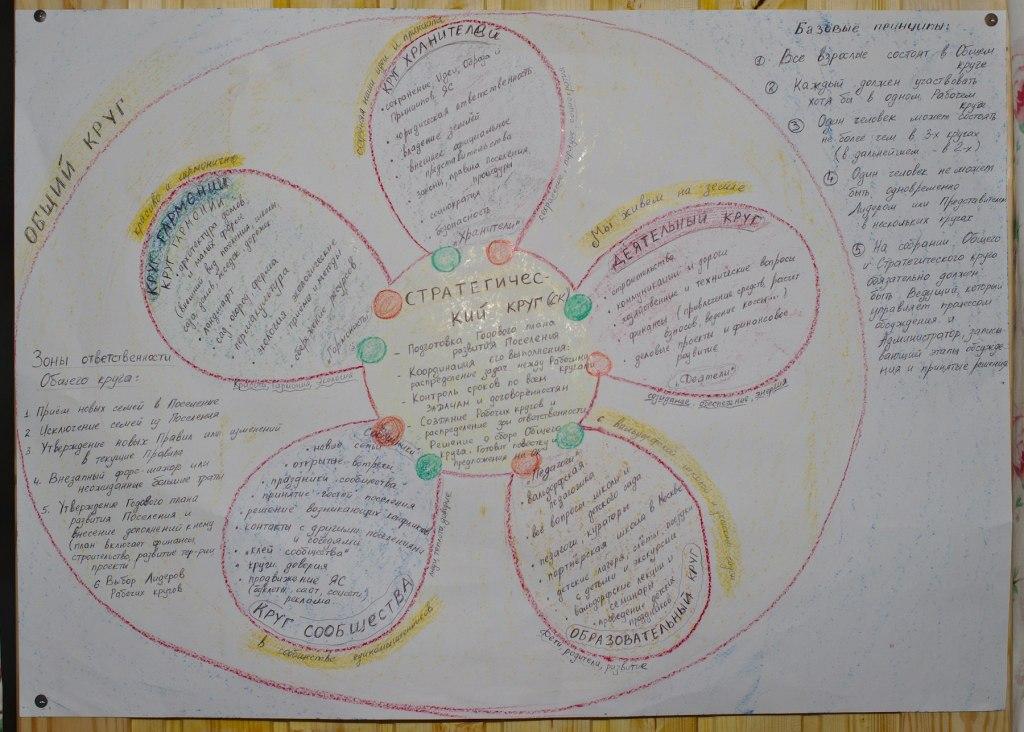 ОБЩИЙ КРУГ
КРУГ ХРАНИТЕЛЕЙ
сохранение Идеи, Образа
Принципов ЯС
юридическая ответственность
владение землёй
внешнее официальное
представительство
законы, правила поселения,
процедуры
социократия
безопасность
"Хранители"
Базовые принципы:
1 Все взрослые состоят в Общем
круге
2 Каждый должен участвовать
хотя бы в одном Рабочем
круге
3 Один человек может состоять
не более чем в 3-х кругах
(в дальнейшем - в 2-х)
4 Один человек не может
быть одновременно
Лидером или Представителем
в нескольких кругах
5 На собрании Общего
и Стратегического круга
обязательно должен
быть Ведущий, который
управляет процессом
обсуждения и
Администратор, записы-
вающий этапы обсужде-
ния и принятые решения
красиво и гармонично
КРУГ ГАРМОНИИ
КРУГ ГАРМОНИИ
архитектура домов
и малых форм
(внешний вид поселения
ландшафт
сад, огород, ферма
пермакультура
экология
Гармонисты
Красота, гармония, экология
Мы живем на земле
ДЕЯТЕЛЬНЫЙ КРУГ
строительство
коммуникации и дороги
хозяйственные и технические вопросы
финансы (привлечение средств, расчет
взносов, ведение кассы...)
деловые проекты и финансовое
развитие
"Деятели"
созидание, обеспечение, энергия
СТРАТЕГИЧЕС-
КИЙ КРУГ (СК)
- Подготовка Годового плана
развития Поселения
- Координация его выполнения:
распределение задач между Рабочими
кругами
- Контроль сроков по всем
задачам и договорённостям
- Создание Рабочих кругов и
распределение зон ответственности
- Решение о сборе Общего
круга. Готовит повестку и
предложения на ОК
Зоны ответственности
Общего круга:
1. Приём новых семей в Поселение
2 Исключение семей из Поселения
3 Утверждение новых Правил или изменений
в текущие Правила
4. Внезапный форс-мажор или
неожиданные большие траты
5. Утверждение Годового плана
развития Поселения и
внесение дополнений к нему
(план включает финансы,
строительство, развитие тер-рии,
проекты)
6. Выбор Лидеров
Рабочих кругов
новые семьи
открытые встречи
праздники сообщества
принятие гостей поселения
решение возникающих конфликтов
контакты с другими поселениями
и соседями
"клей сообщества"
круги доверия
продвижение ЯС
(буклеты, сайт, соцсети)
реклама...
КРУГ СООБЩЕСТВА
В сообществе единомышленников
"Педагоги"
вальдорфская
педагогика
все вопросы школы и
детского сада
педагоги, кураторы
партнёрская школа в Москве
детские лагеря, слёты, поездки
с детьми и экскурсии
вальдорфские лекции и
семинары
проведение детских
праздников
ОБРАЗОВАТЕЛЬНЫЙ КРУГ
Дети, родители, развитие